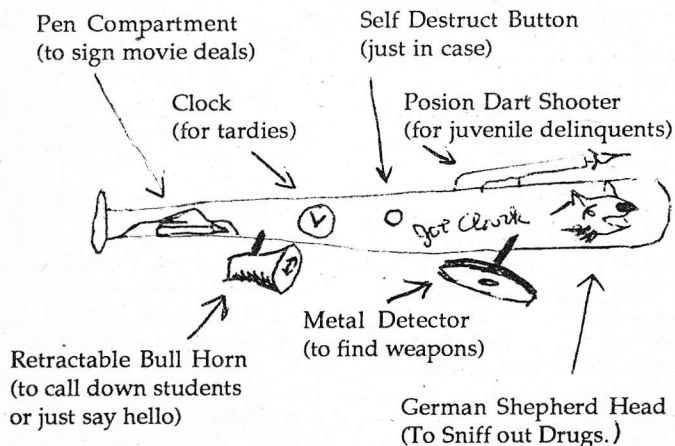 Pen Compartment
(to sign movie deals)
Self Destruct Button
(just in case)
Clock
(for tardies)
Posion Dart Shooter
(for juvenile delinquents)
Joe Clark
Metal Detector
(to find weapons)
Retractable Bull Horn
(to call down students
or just say hello)
German Shepherd Head
(To Sniff out Drugs.)